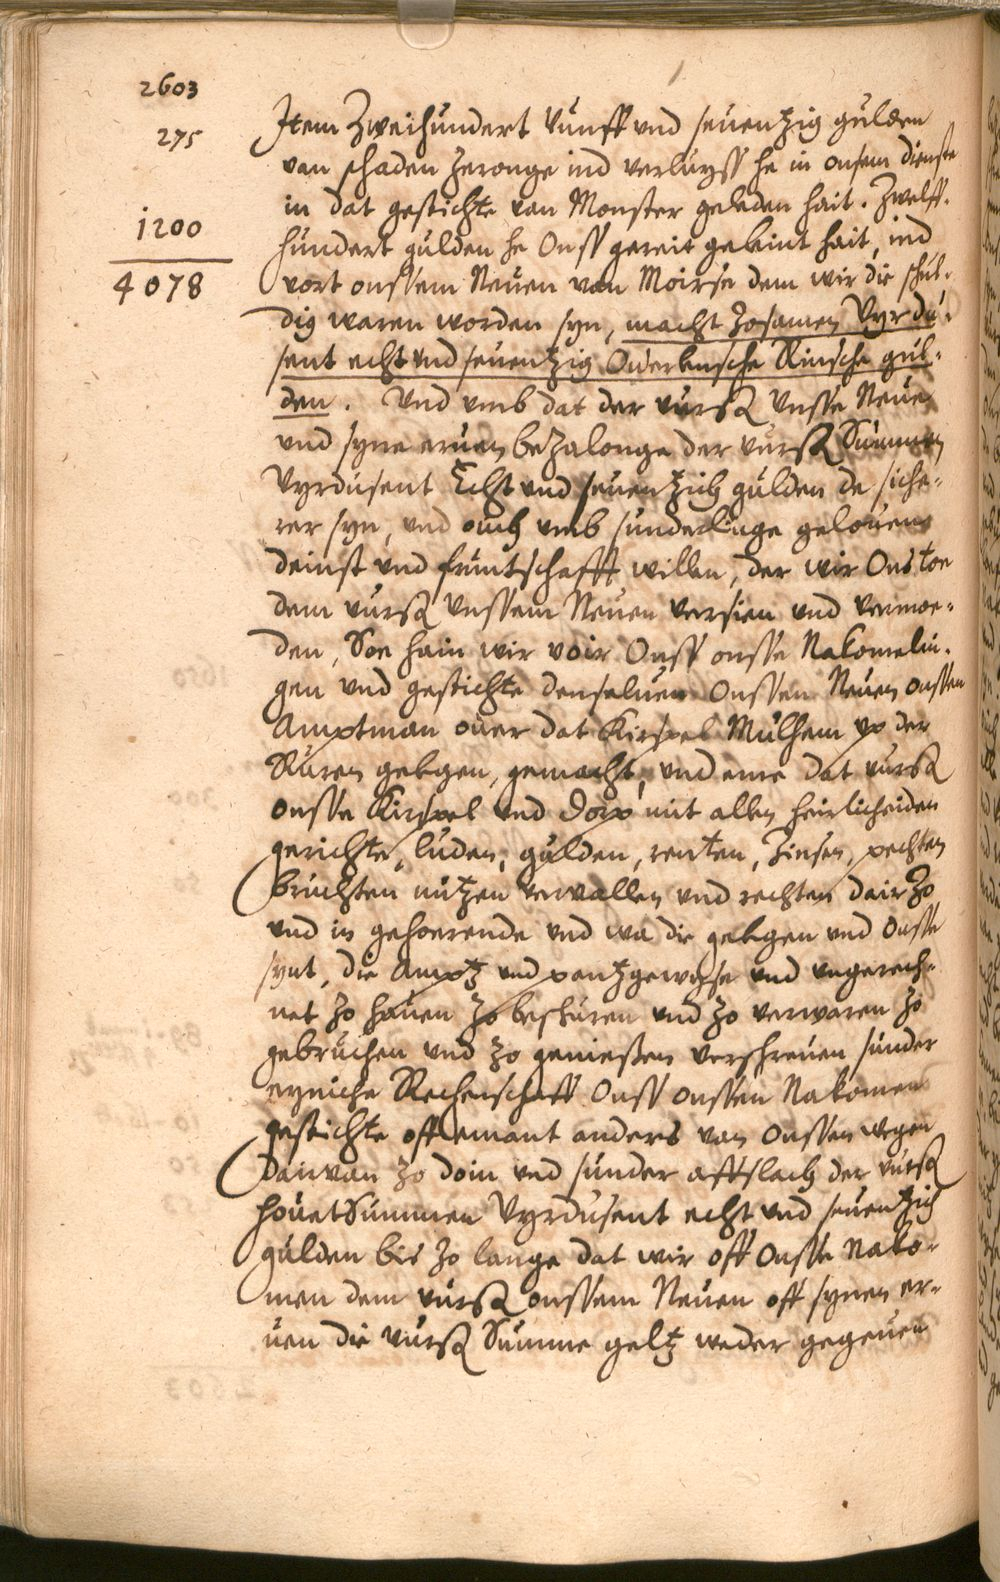 2603
275
1200
4078
Item Zweihundert vunff und seuentzig gulden
van schaden zeronge ind verluyss he in onsem dienste
in dat gestichte van Monster geleden hait. Zwelff-
hundert gulden he Onss gereit geleint hait, ind
vort onssem Neuen van Moirse dem wir die schul-
dig waren worden syn, macht zosamen Vyrdu-
sent echt und seuentzig Ouerlensche Rinsche gul-
den. Und umb dat der vurß Unsse Neue
und syne eruen bezalonge der vurß Summen
Vyrdusent Echt und seuentzich gulden de siche-
rer syn, und ouch umb sunderlinge gelouens
deinst und fruntschafft willen, der wir Ons toe
dem vurß Unssem Neuen versien und vermoe-
den, Soe hain wir voir Onss onsse Nakomelin-
gen und gestichte denseluen Onssen Neuen onssen
Amptman ouer dat Kirspel Mulhem up der
Ruren gelegen, gemacht, und eme dat vurß
onsse Kirspel und Dorp mit allen heirlicheiden
gerichte, luden, gulden, renten, Zinsen, pechten
bruchten nutzen vervallen und rechten dairzo
und in gehoerende und wa die gelegen und Onsse
synt, die Amptz und pantzgewyse und ungerech-
net zo hauen zo beschuren und zo verwaren zo
gebruchen und zo geniessen verschreuen sunder
eyniche Rechenschafft Onss onssen Nakomen
gestichte off iemant anders van Onssen wegen
dairvan zo doin und sunder affslach der vurß
houetSummen Vyrdusent echt und seuentzich
gulden bis zo lange dat wir off Onsse Nako-
men dem vurß onssem Neuen off synen er-
uen die vurß Summe geltz weder gegeuen